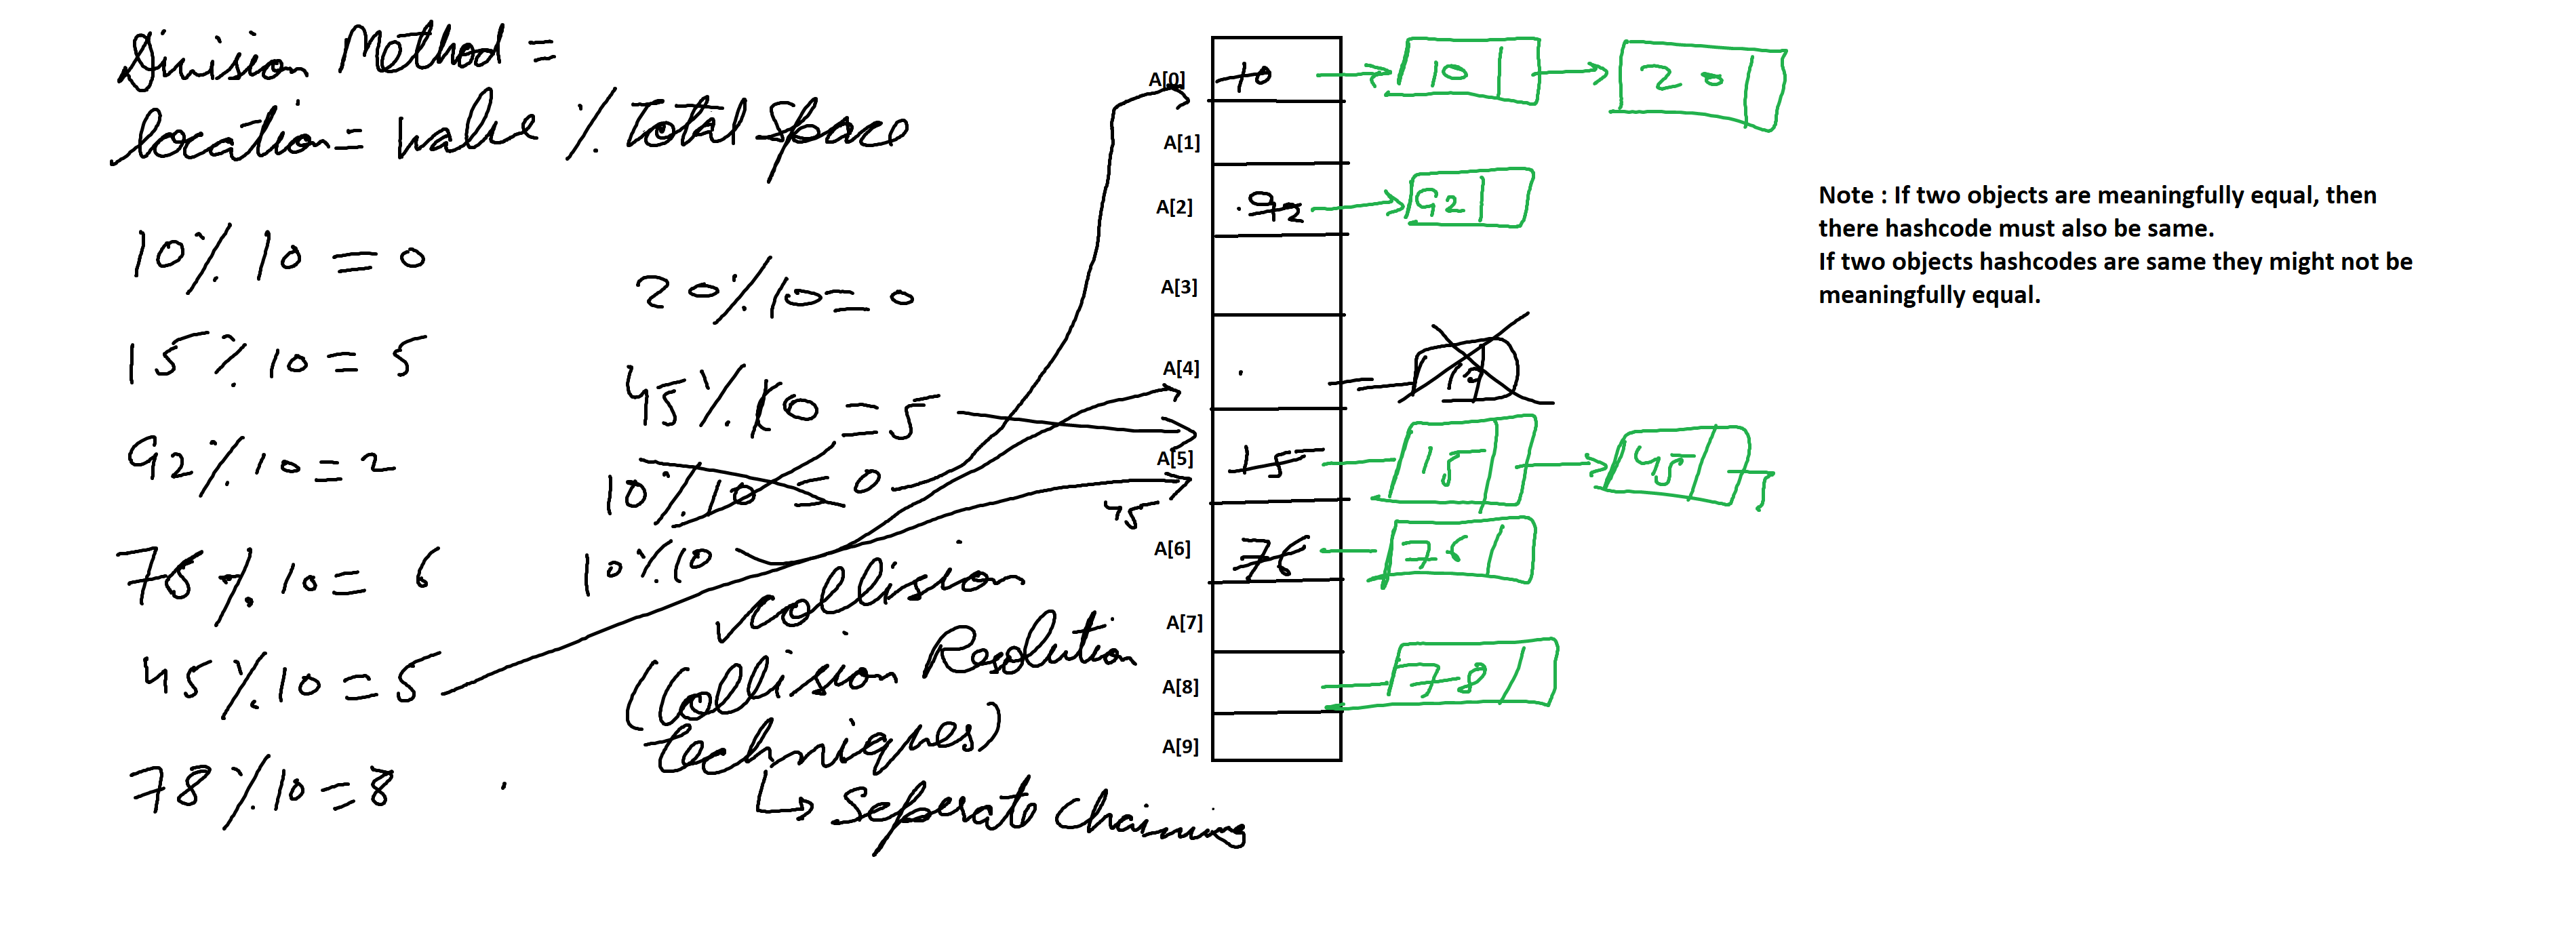 Division Method =
location = value % Total Space
10 % 10 = 0
15 % 10 = 5
92 % 10 = 2
76 % 10 = 6
45 % 10 = 5
78 % 10 = 8
20 % 10 = 0
45 % 10 = 5
10 % 10 = 0
10 % 10
45
collision
(Collision Resolution
techniques)
Seperate Chaining
A[0] 10 10 20
A[1]
A[2] 92 92
A[3]
A[4]
A[5] 15 15 45
A[6] 76 76
A[7]
A[8] 78
A[9]
Note : If two objects are meaningfully equal, then
there hashcode must also be same.
If two objects hashcodes are same they might not be
meaningfully equal.